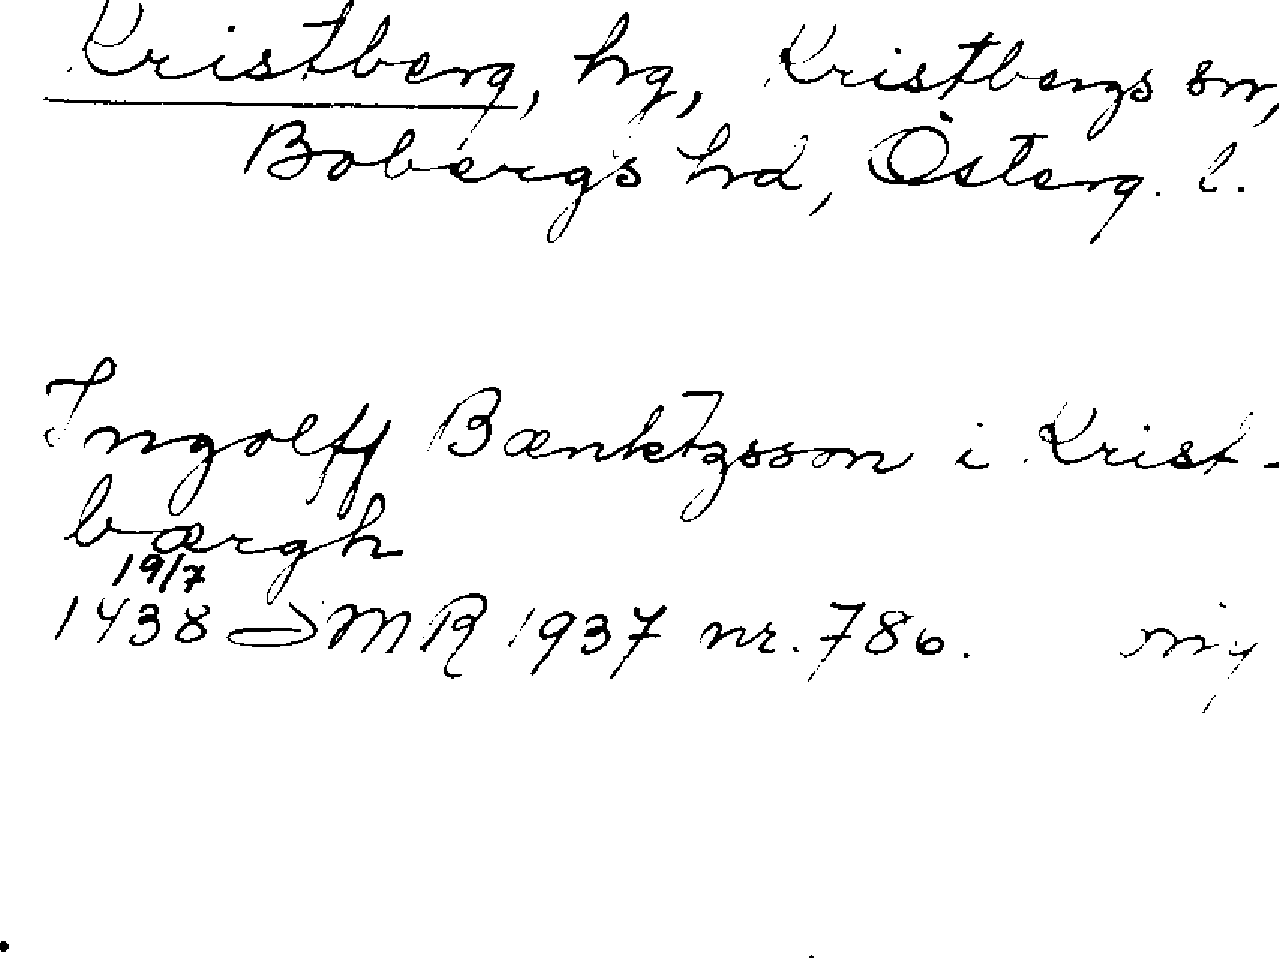 Kristberg, hg, Kristbergs sn,
Bobergs hd, Österg. l.
Ingolff Bænktzsson i Krist-
bærgh
19/7
1438 SMR 1937 nr. 786.